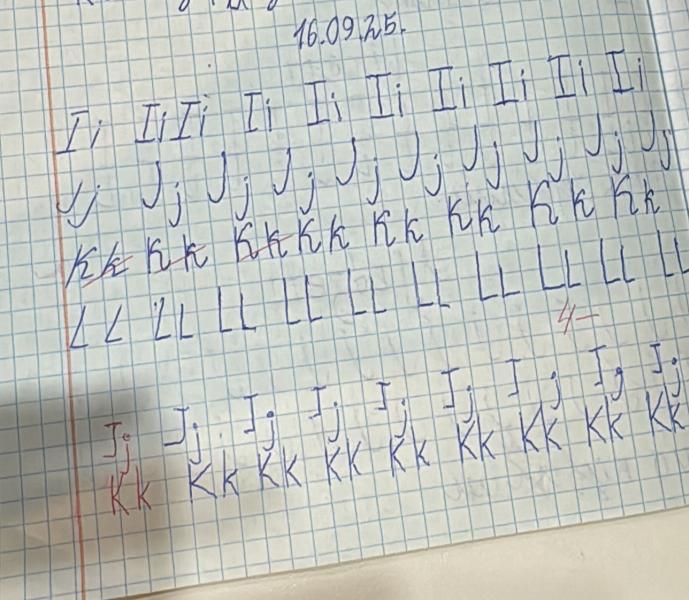 16.09.25.
Ii Ii Ii Ii Ii Ii Ii Ii Ii Ii
Jj Jj Jj Jj Jj Jj Jj Jj Jj Jj
Kk Kk Kk Kk Kk Kk Kk Kk
LL LL LL LL LL LL LL LL LL LL
4-
Jj Jj Jj Jj Jj Jj Jj Jj Jj
Kk Kk Kk Kk Kk Kk Kk Kk Kk